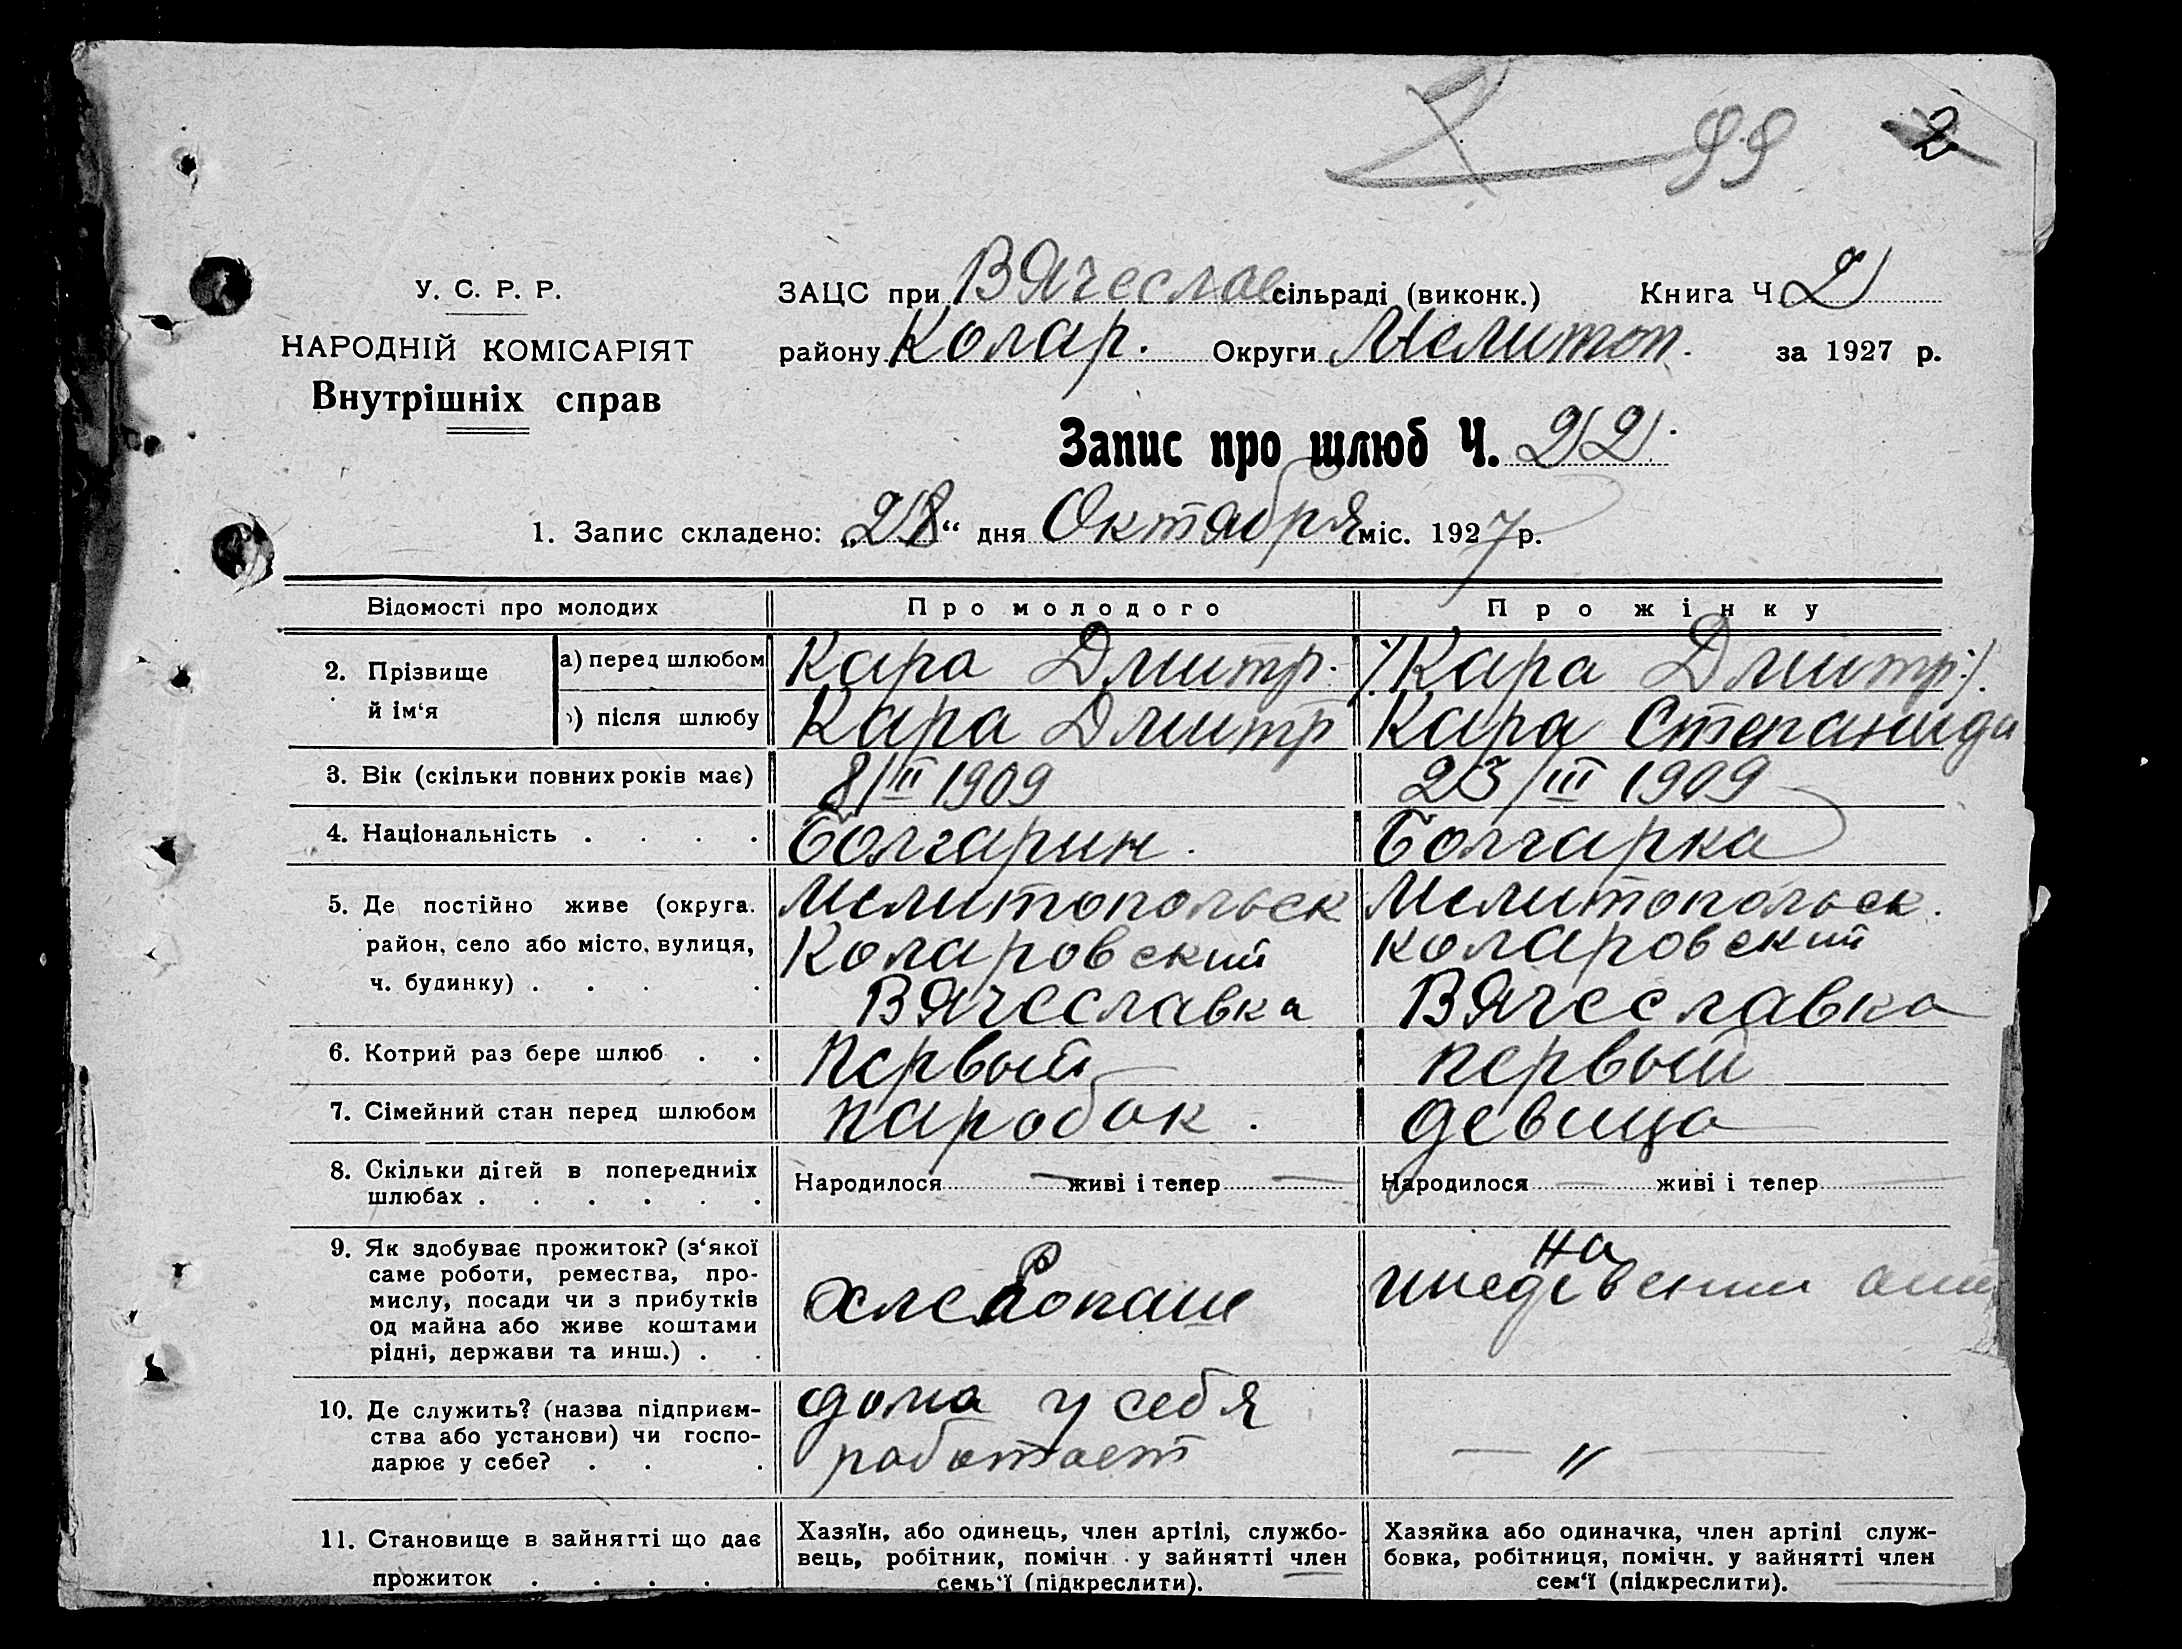 99 2
У. С. Р. Р.
НАРОДНІЙ КОМІСАРІЯТ
Внутрішніх справ
ЗАЦС при Вячеслав сільраді (виконк.) Книга Ч. 2
району Колар. Округи Мелитоп. за 1927 р.
Запис про шлюб Ч. 22.
1. Запис складено: „28“ дня Октября міс. 1927 р.
Відомості про молодих Про молодого Про жінку
2. Прізвище й ім‘я
а) перед шлюбом Кара Дмитр. /Кара Дмитр./.
) після шлюбу Кара Дмитр Кара Степанида
3. Вік (скільки повних років має) 8/II 1909 23/III 1909
4. Національність . . . . Болгарин. Болгарка
5. Де постійно живе (округа. Мелитопольск Мелитопольск.
район, село або місто, вулиця, Коларовский Коларовский
ч. будинку) . . . . Вячеславка Вячеславка
6. Котрий раз бере шлюб . . первый первый
7. Сімейний стан перед шлюбом паробок. девица
8. Скільки дітей в попередниіх
шлюбах . . . . . . Народилося — живі і тепер — Народилося — живі і тепер —
9. Як здобуває прожиток? (з‘якої
саме роботи, ремества, про-
мислу, посади чи з прибутків
од майна або живе коштами
рідні, держави та инш.) . .
хлебопаше
на
иждевении
10. Де служить? (назва підприєм-
ства або установи) чи госпо-
дарює у себе? . . .
дома у себя
работает
—〃 —
11. Становище в зайнятті що дає
прожиток . . . .
Хазяїн, або одинець, член артілі, службо-
вець, робітник, помічн. у зайнятті член
семь‘ї (підкреслити).
Хазяйка або одиначка, член артілі служ-
бовка, робітниця, помічн. у зайнятті член
сем‘ї (підкреслити).